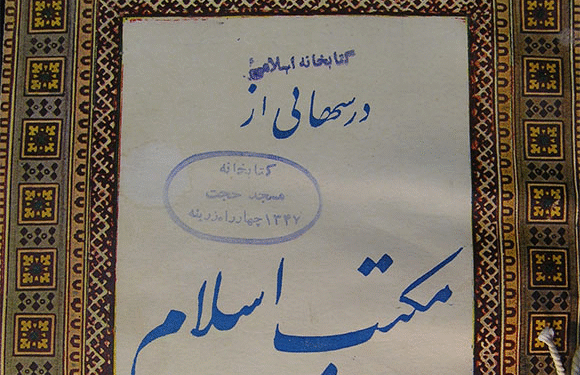 کتابخانه اسلامی
درسهائی از
کتابخانه
مسجد حجت
۱۳۴۷ چهارراه زرینه
مکتب اسلام